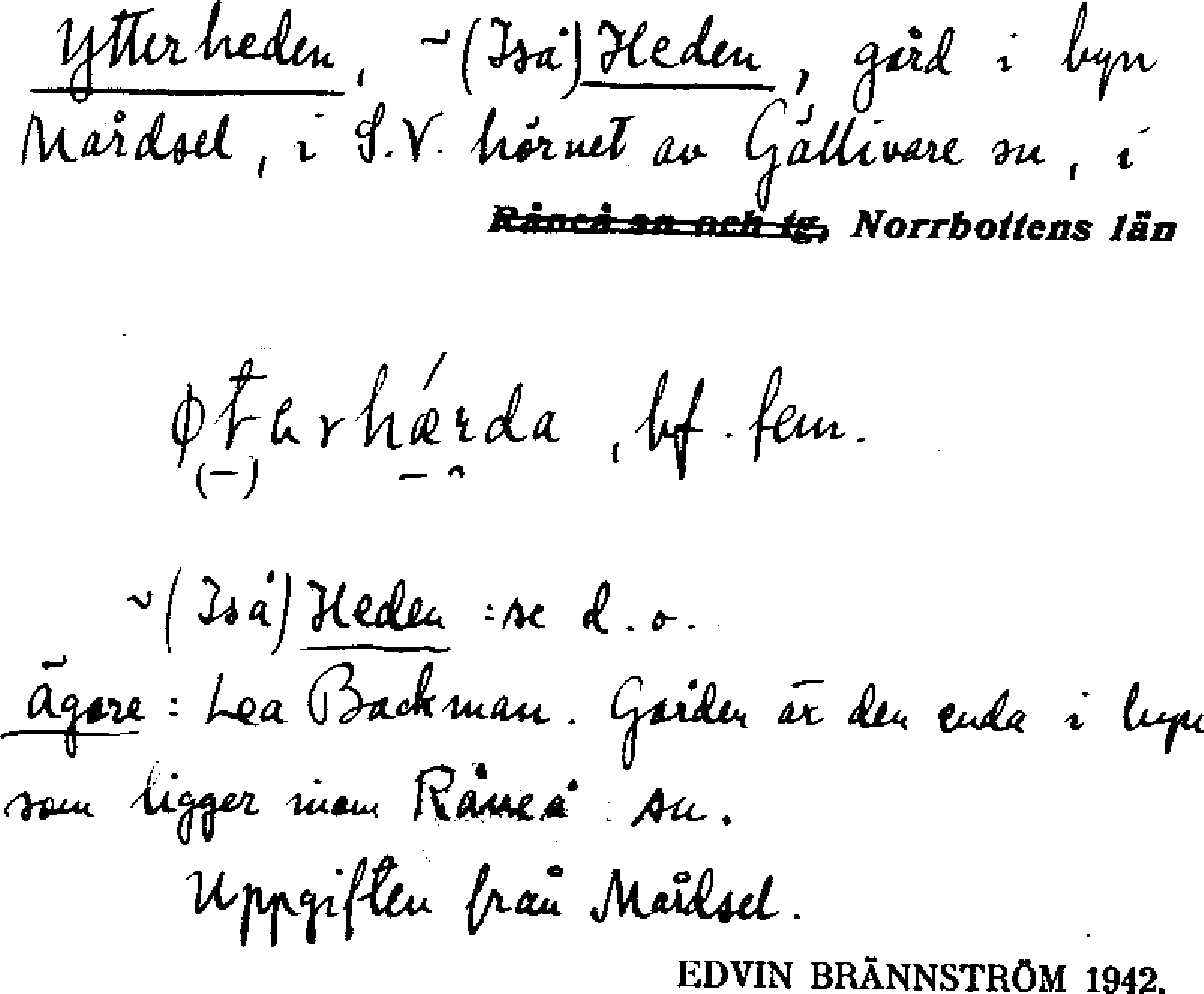 Ytterheden, ~ (Iså) Heden, gård i byn
Mårdsel, i S.V. hörnet av Gällivare sn, i
Råneå sn och tg, Norrbottens län
, bf. fem.
~ (Iså) Heden : se d. o.
Ägare : Lea Backman. Gården är den enda i byn
som ligger inom Råneå sn.
Uppgiften från Mårdsel.
EDVIN BRÄNNSTRÖM 1942.